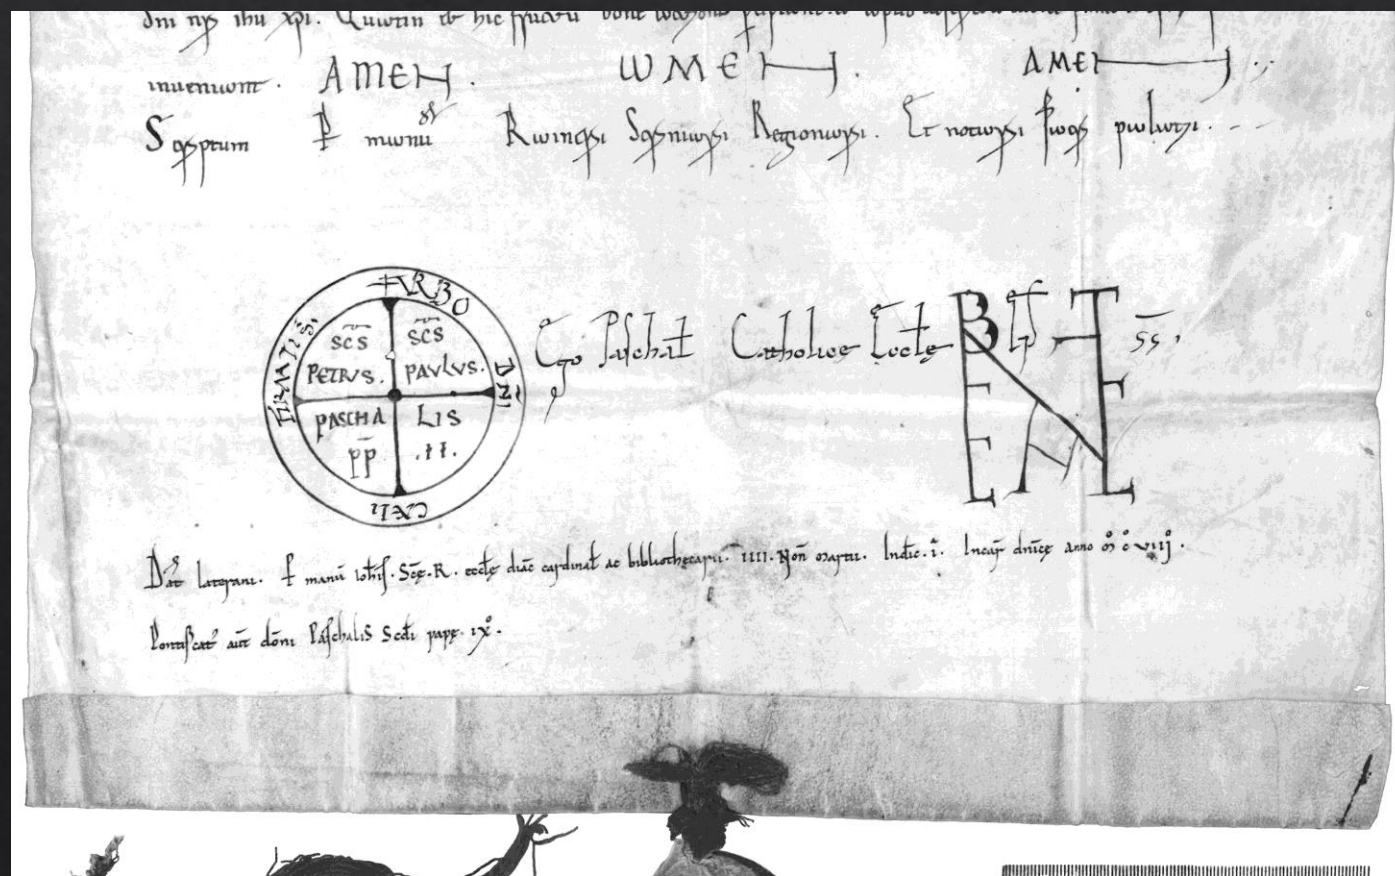 dni nri ihu xpi. Quatin et hic fructu bone
inveniant. AMEN. AMEN. AMEN.
Scriptum p manu Rainerii Scriniarii Regionarii. Et notarii sacri palatii.
+ VRBO DNI CAELI FIRMATI S.
SCS PETRVS. SCS PAVLVS.
PASCHALIS PP .II.
Ego Paschal Catholice Eccle Eps ss.
BENE VALETE
Dat Laterani. p manu Iohis. Sce. R. eccle diac cardinal ac bibliothecarii. IIII. Non Martii. Indic. I. Incar dnice anno M C VIIII.
Pontificat aut domni Paschalis Scdi pape. IX.